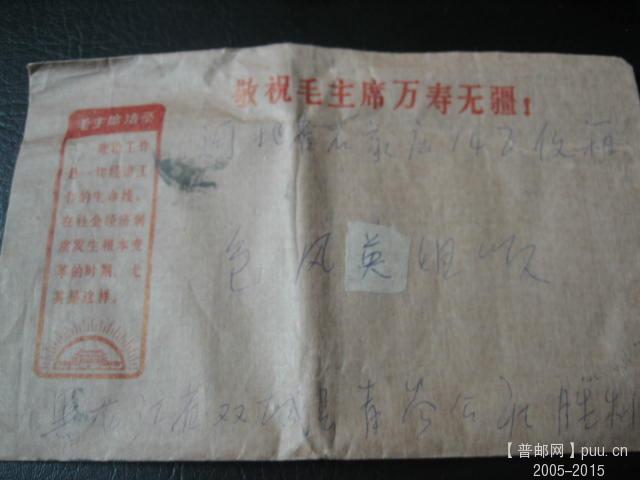 敬祝毛主席万寿无疆！
河北省石家庄 信箱
政治工作
是一切经济工
作的生命线。
在社会经济制
度发生根本变
革的时期，尤
其是这样。
英姐收
黑龙江省双城县青岭公社胜利
【普邮网】puu.cn
2005-2015